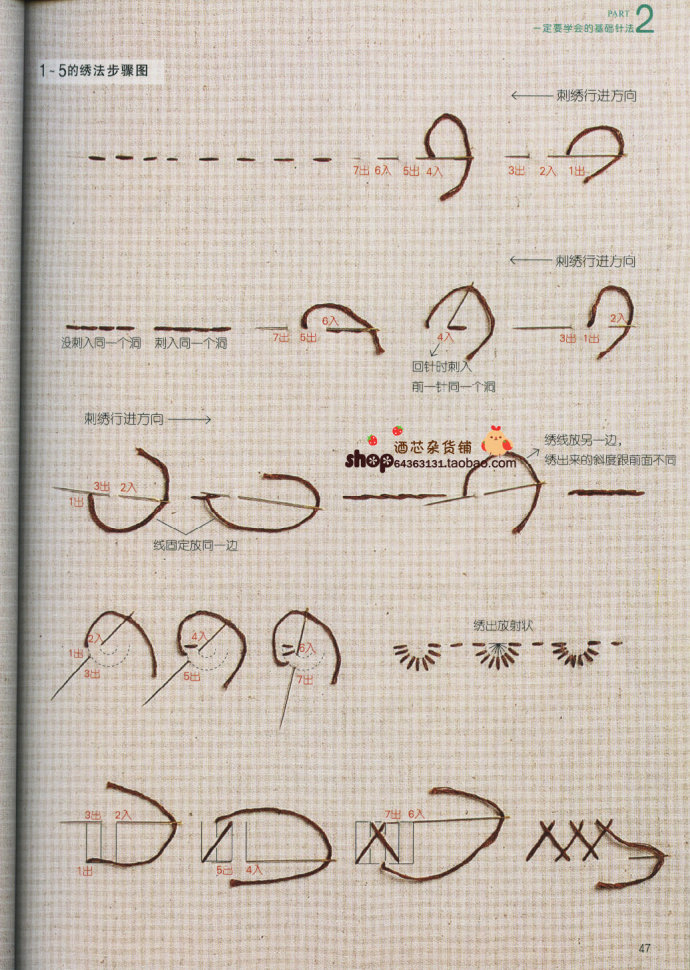 PART 2
一定要学会的基础针法
1~5的绣法步骤图
刺绣行进方向
7出 6入 5出 4入 3出 2入 1出
刺绣行进方向
6入 2入
7出 5出 4入 3出 1出
没刺入同一个洞 刺入同一个洞
回针时刺入
前一针同一个洞
刺绣行进方向
绣线放另一边,
绣出来的斜度跟前面不同
酒芯杂货铺
shop64363131.taobao.com
3出 2入
1出
线固定放同一边
绣出放射状
2入 4入 6入
1出
3出 5出 7出
3出 2入 7出 6入
1出 5出 4入
47